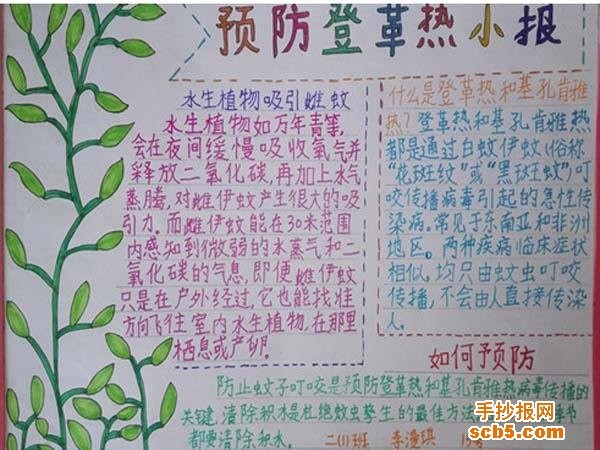 预防登革热小报
水生植物吸引雌蚊
水生植物如万年青等,
会在夜间缓慢吸收氧气并
释放二氧化碳,再加上水气
蒸腾,对雌伊蚊产生很大的吸
引力。而雌伊蚊能在30米范围
内感知到微弱的水蒸气和二
氧化碳的气息,即使雌伊蚊
只是在户外经过,它也能找准
方向飞往室内水生植物,在那里
栖息或产卵。
什么是登革热和基孔肯雅
热?登革热和基孔肯雅热
都是通过白蚊伊蚊(俗称
“花斑纹”或“黑斑蚊”)叮
咬传播病毒引起的急性传
染病。常见于东南亚和非洲
地区。两种疾病临床症状
相似,均只由蚊虫叮咬
传播,不会由人直接传染
人。
如何预防
防止蚊子叮咬是预防登革热和基孔肯雅热病毒传播的
关键,清除积水是杜绝蚊虫孳生的最佳方法
都要清除积水。 二(1)班 李漫琪 15号
手抄报网
scb5.com